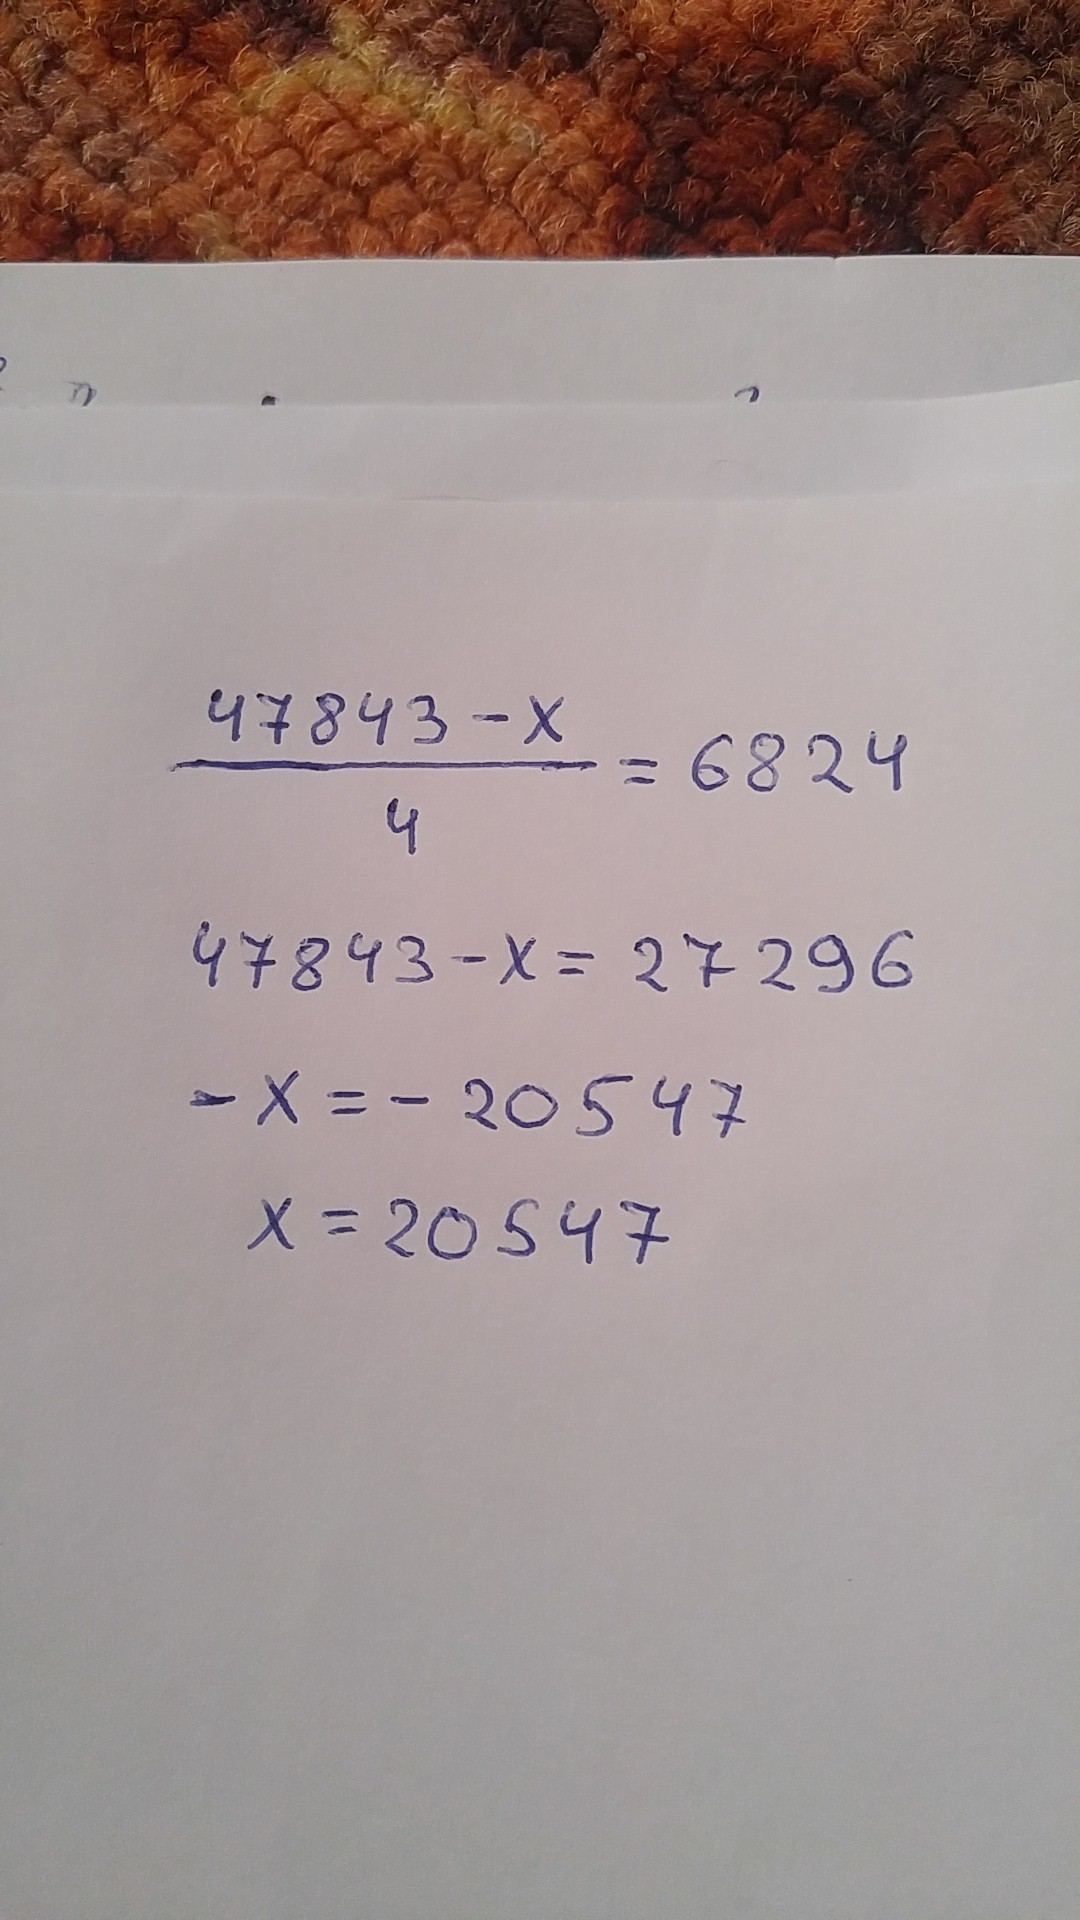 47843-x
4
= 6824
47843-x = 27296
-x = -20547
x = 20547